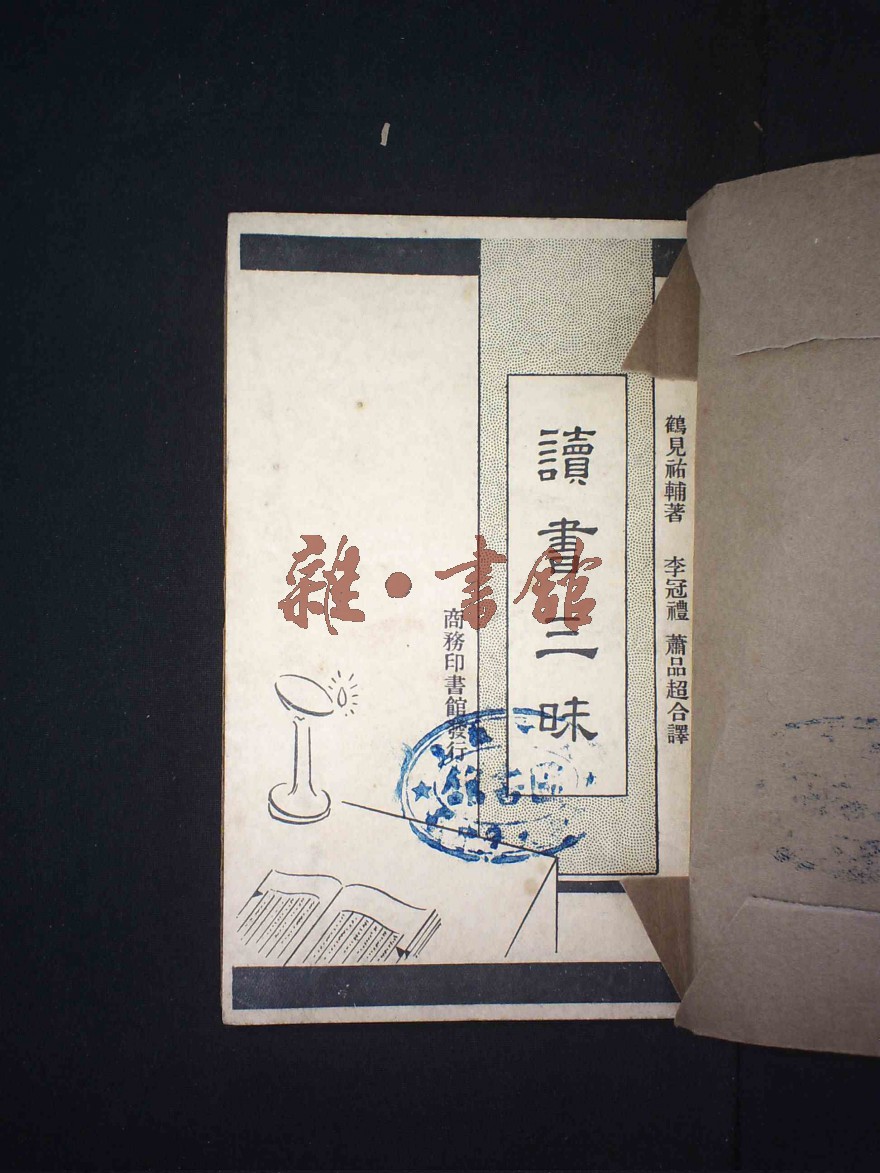 鶴見祐輔著 李冠禮 蕭品超合譯
讀書三昧
商務印書館發行
雜·書館